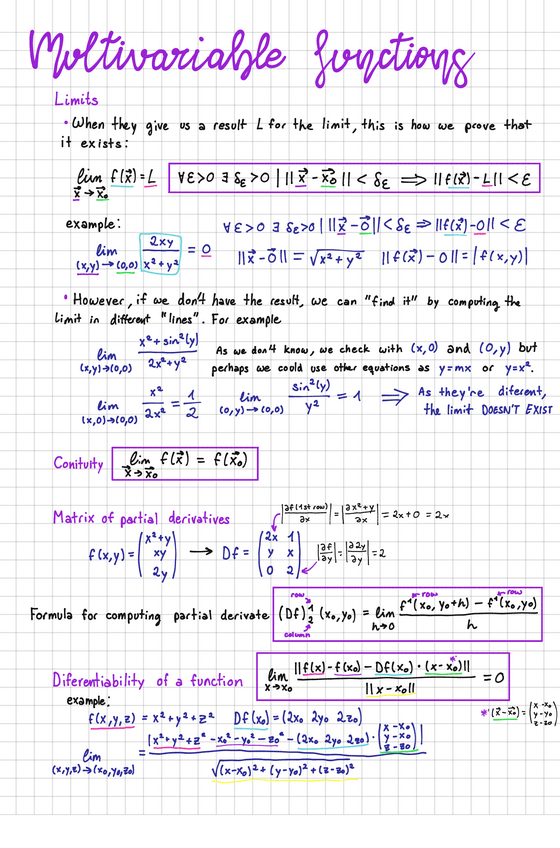 Multivariable functions
Limits
• When they give us a result L for the limit, this is how we prove that
it exists:
lim f(x⃗) = L   ∀ε>0 ∃ δε>0 | ||x⃗ - x⃗0|| < δε ⟹ ||f(x⃗) - L|| < ε
x⃗→x⃗0
example:   ∀ε>0 ∃ δε>0 | ||x⃗ - 0⃗|| < δε ⟹ ||f(x⃗) - 0|| < ε
lim (x,y)→(0,0) 2xy / x²+y² = 0   ||x⃗ - 0⃗|| = √x²+y²   ||f(x⃗) - 0|| = |f(x,y)|
• However, if we don't have the result, we can "find it" by computing the
limit in different "lines". For example
lim (x,y)→(0,0) x²+sin²(y) / 2x²+y²   As we don't know, we check with (x,0) and (0,y) but
perhaps we could use other equations as y=mx or y=x².
lim (x,0)→(0,0) x² / 2x² = 1/2   lim (0,y)→(0,0) sin²(y) / y² = 1 ⟹ As they're diferent,
the limit DOESN'T EXIST
Conituity   lim x⃗→x⃗0 f(x⃗) = f(x⃗0)
Matrix of partial derivatives   |∂f(1st row)/∂x| = |∂x²+y/∂x| = 2x+0 = 2x
f(x,y) = (x²+y   xy   2y) → Df = (2x 1   y x   0 2)   |∂f/∂y| = |∂2y/∂y| = 2
row   row   row
Formula for computing partial derivate (Df)¹₂ (x0,y0) = lim h→0 f¹(x0, y0+h) - f¹(x0,y0) / h
column
Diferentiability of a function   lim x→x0 ||f(x) - f(x0) - Df(x0) · (x-x0)|| / ||x-x0|| = 0
example:
f(x,y,z) = x²+y²+z²   Df(x0) = (2x0 2y0 2z0)   * (x⃗-x⃗0) = (x-x0   y-y0   z-z0)
lim (x,y,z)→(x0,y0,z0) = |x²+y²+z² - x0² - y0² - z0² - (2x0 2y0 2z0) · (x-x0   y-y0   z-z0)|
√(x-x0)² + (y-y0)² + (z-z0)²